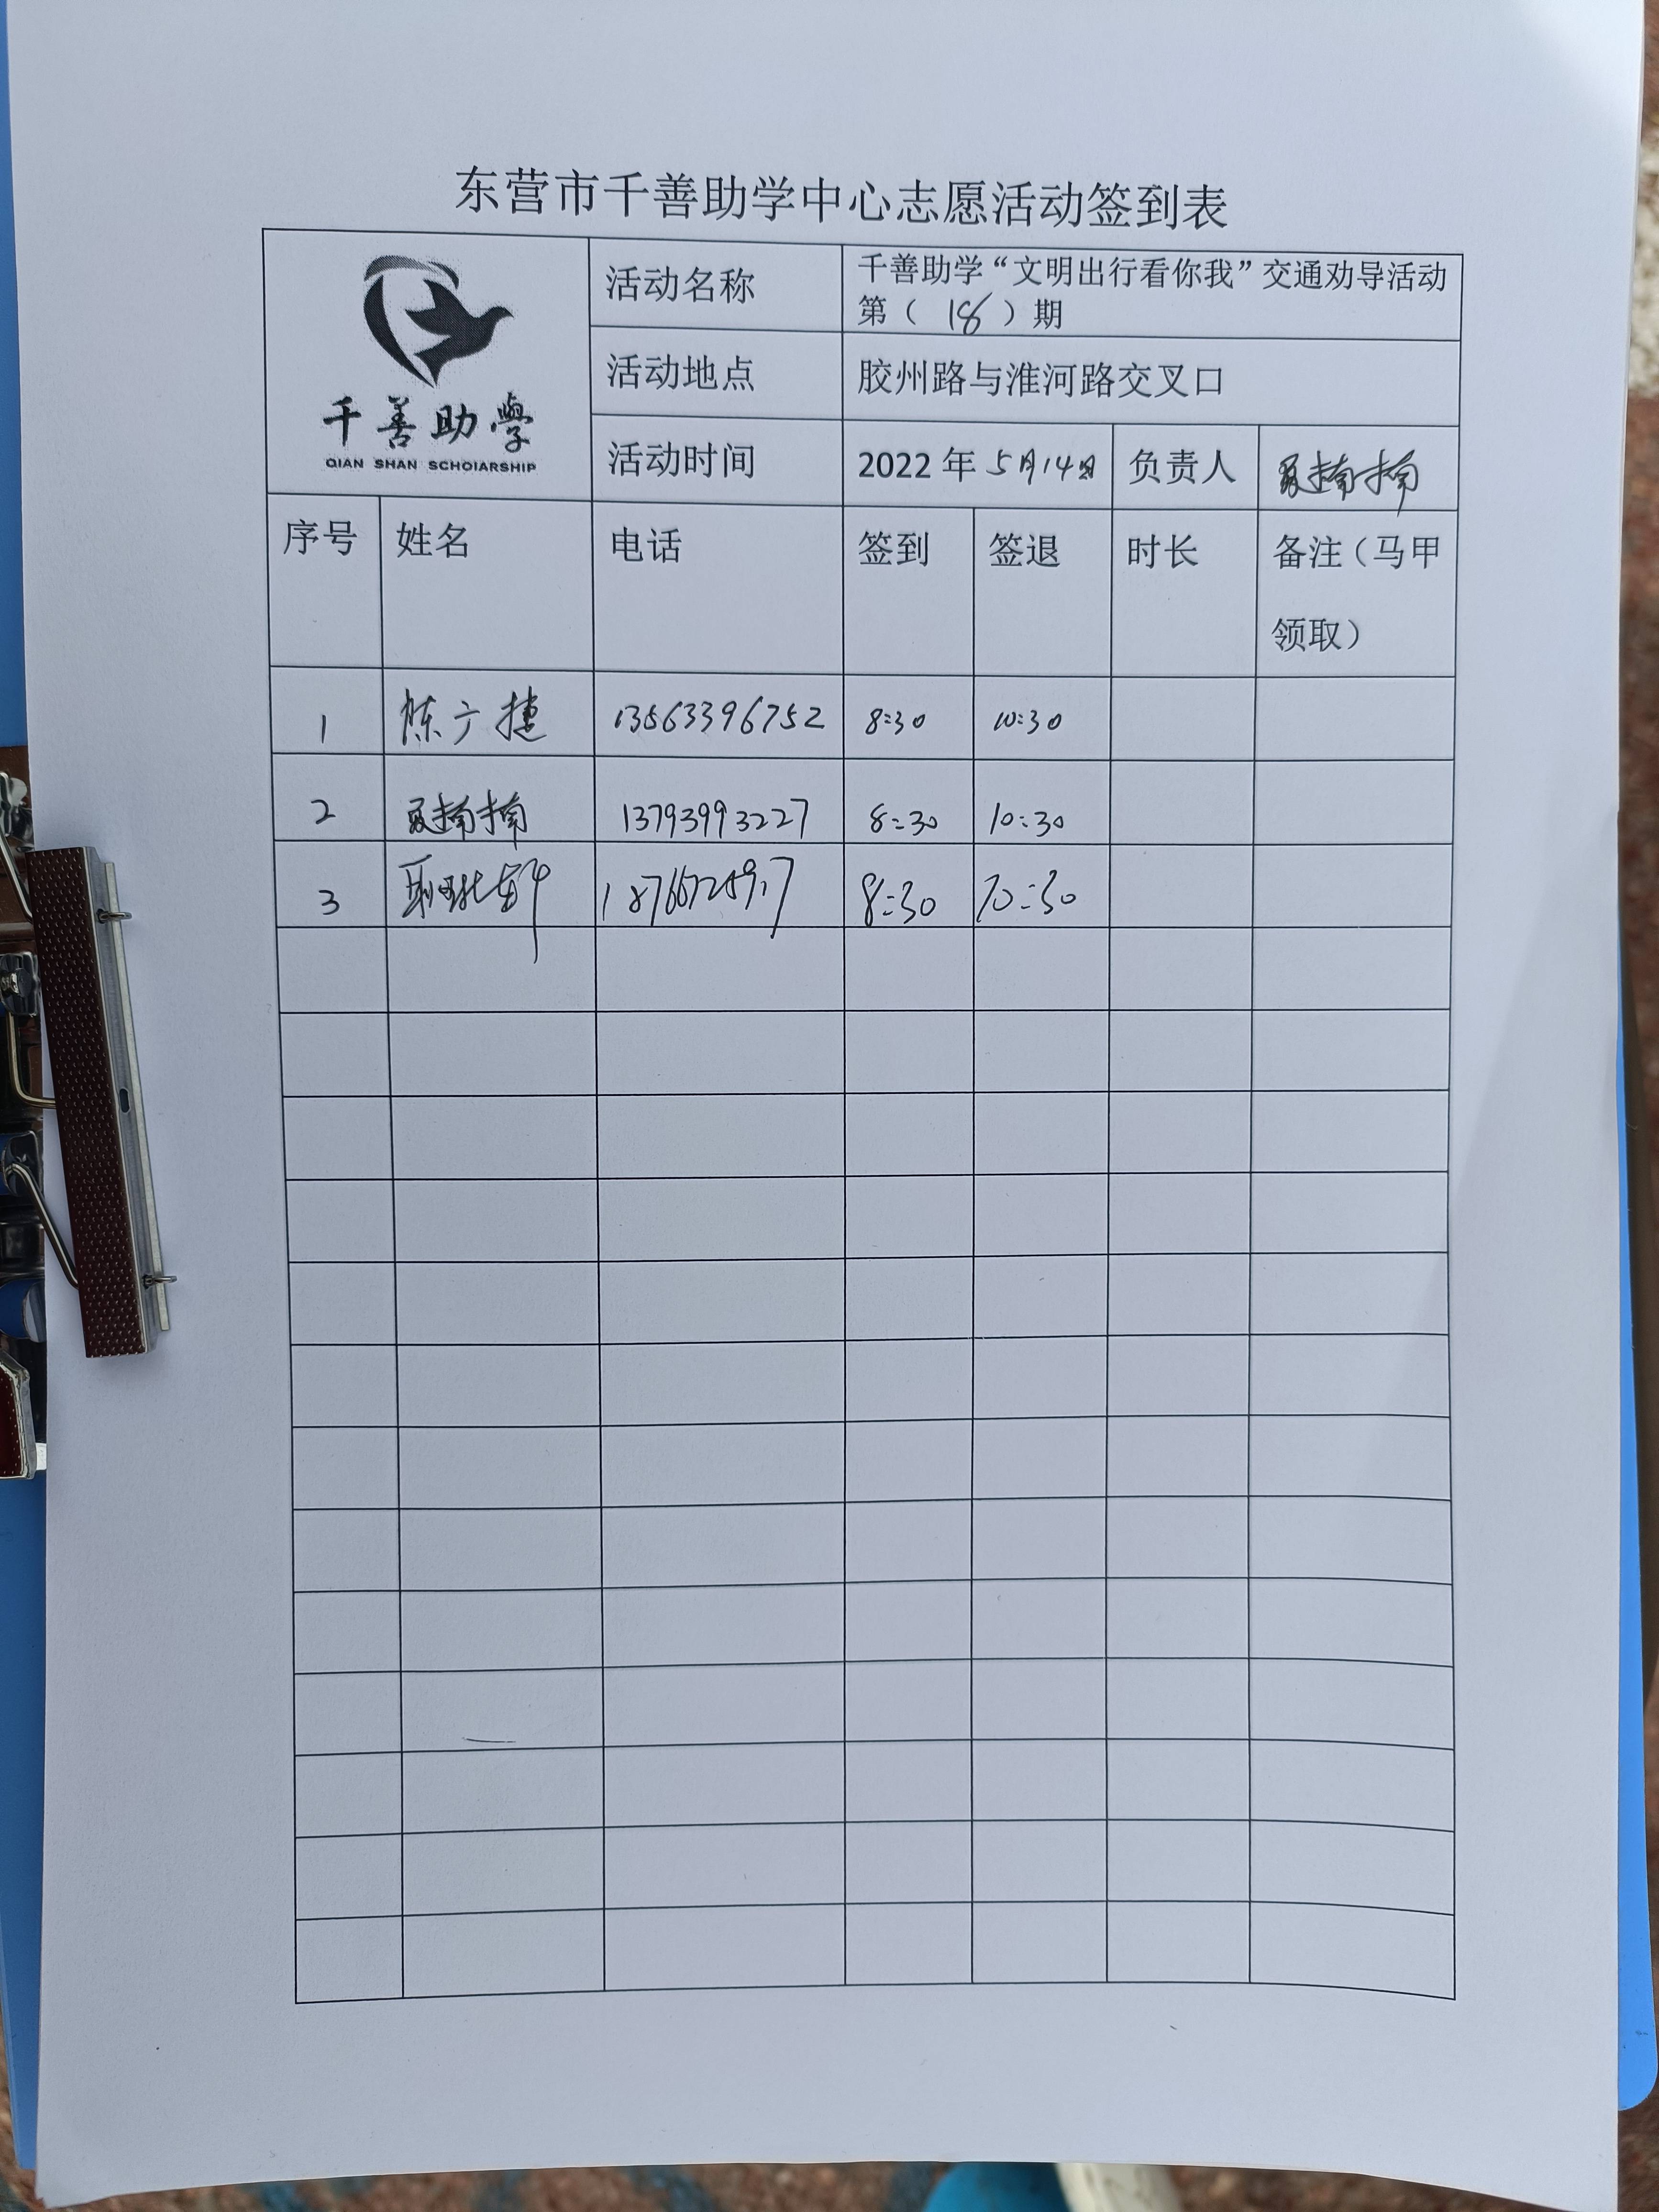 东营市千善助学中心志愿活动签到表
千善助學
QIAN SHAN SCHOIARSHIP
活动名称 千善助学“文明出行看你我”交通劝导活动
第（ 18 ）期
活动地点 胶州路与淮河路交叉口
活动时间 2022 年 5月14日 负责人
序号 姓名 电话 签到 签退 时长 备注（马甲
领取）
1 陈广捷 13563396752 8:30 10:30
2 13793993227 8:30 10:30
3 8:30 10:30